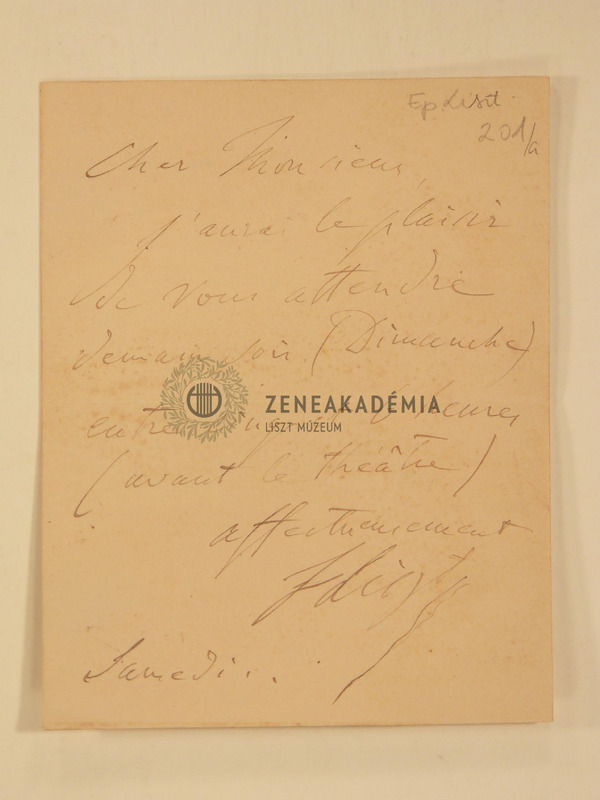 Ep. Liszt.
201/a
Cher Monsieur,
j'aurai le plaisir
de vous attendre
demain soir (Dimanche)
entre heures
(avant le théâtre)
affectueusement
FLiszt
Samedi..
ZENEAKADÉMIA
LISZT MÚZEUM